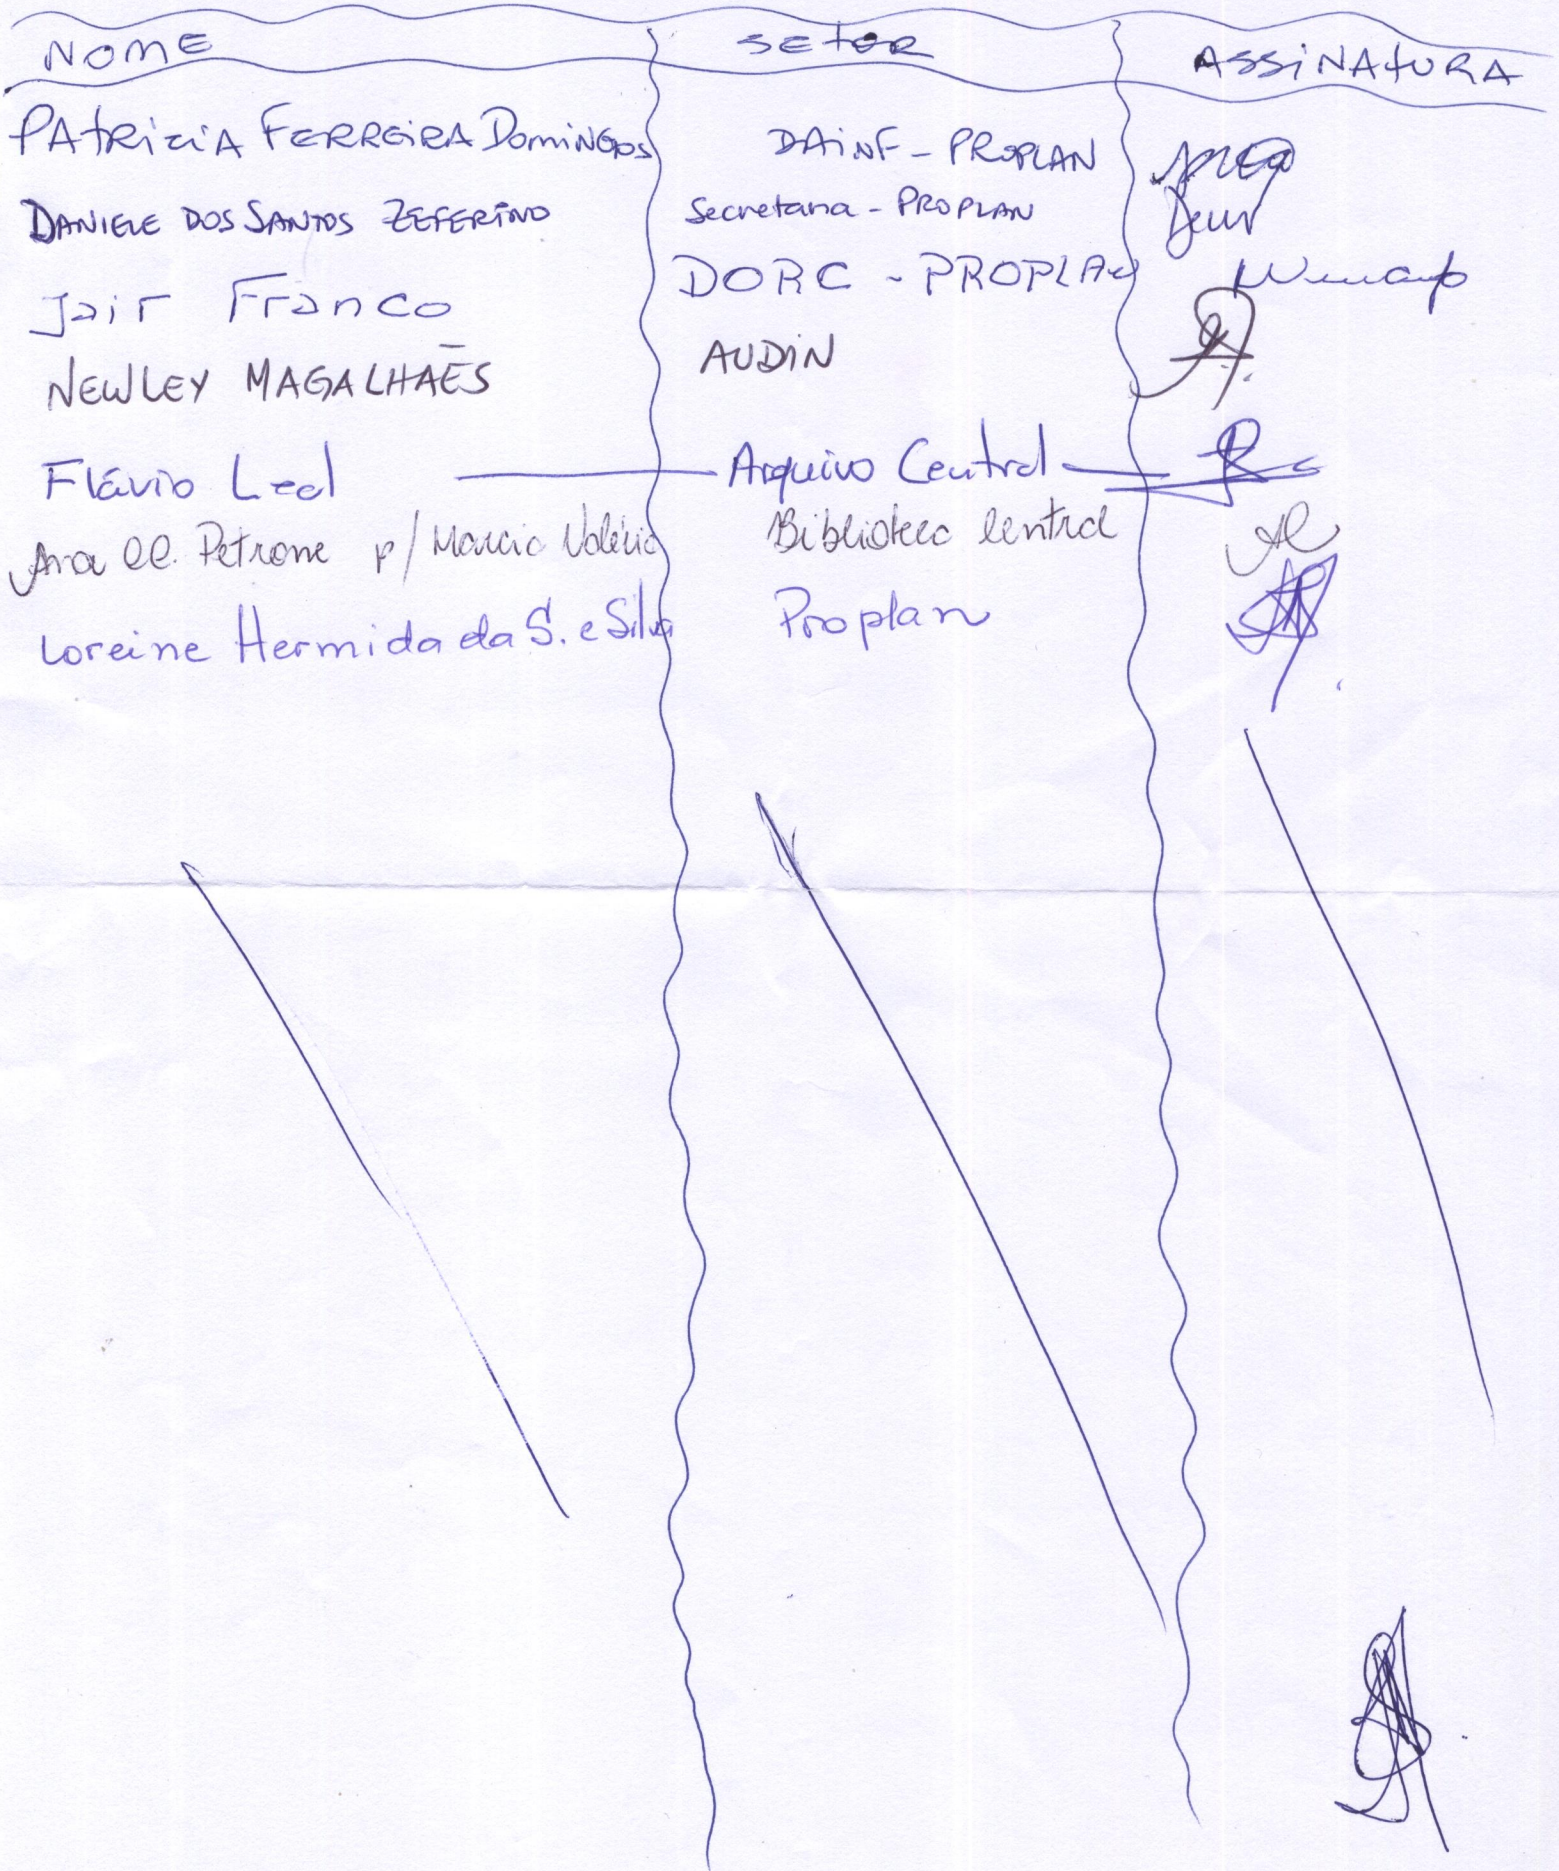 NOME SETOR ASSINATURA
PATRICIA FERREIRA DOMINGOS DAINF - PROPLAN
DANIELE DOS SANTOS ZEFERINO Secretaria - PROPLAN
Jair Franco DORC - PROPLAN
NEWLEY MAGALHAĒS AUDIN
Flávio Leal Arquivo Central
Ana Petrone p/ Marcia Valéria Biblioteca Central
Loreine Hermida da S. e Silva Proplan